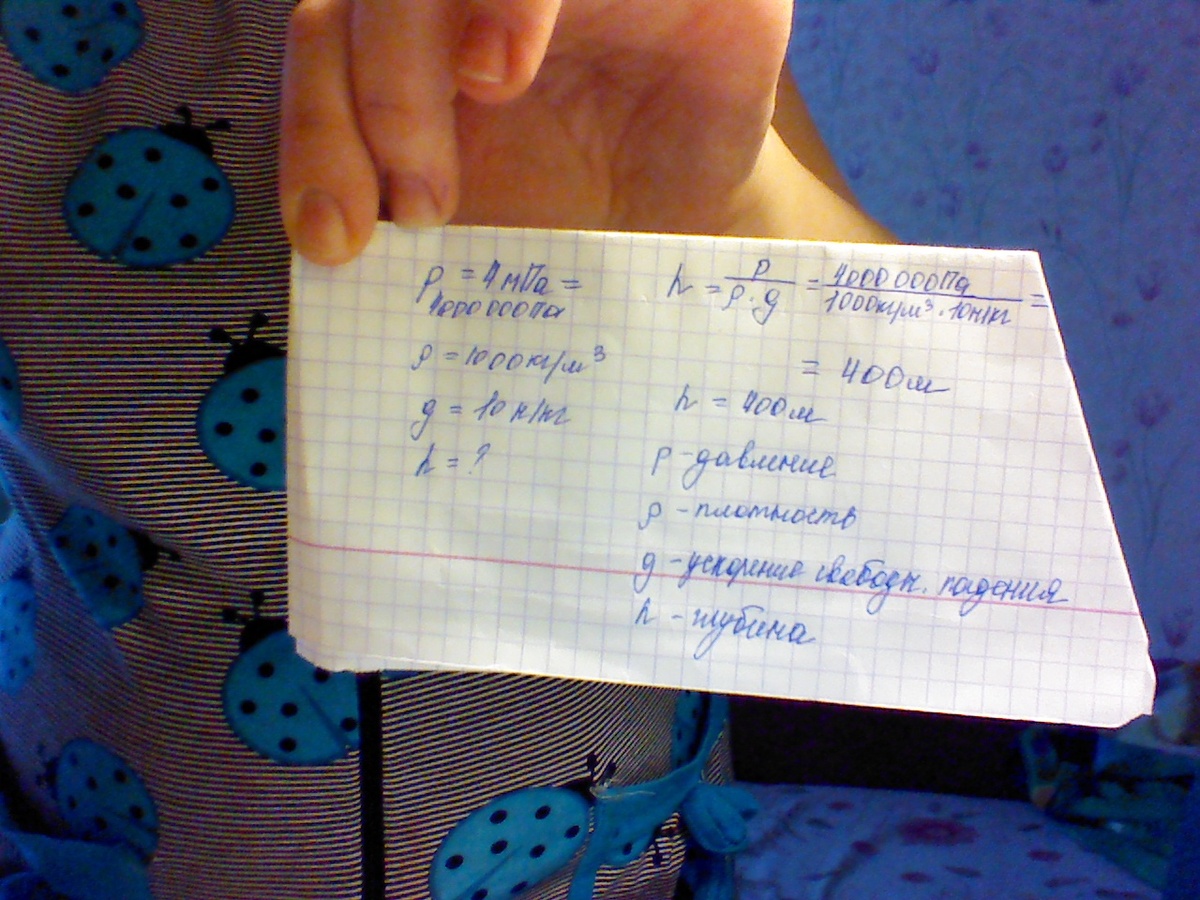 p = 4 мПа =
4000 000Па
ρ = 1000кг/м³
g = 10 н/кг
h = ?
h = p/ρ·g = 4000 000Па/1000кг/м³ · 10н/кг =
= 400м
h = 400м
p - давление
ρ - плотность
g - ускорение свободн. падения
h - глубина